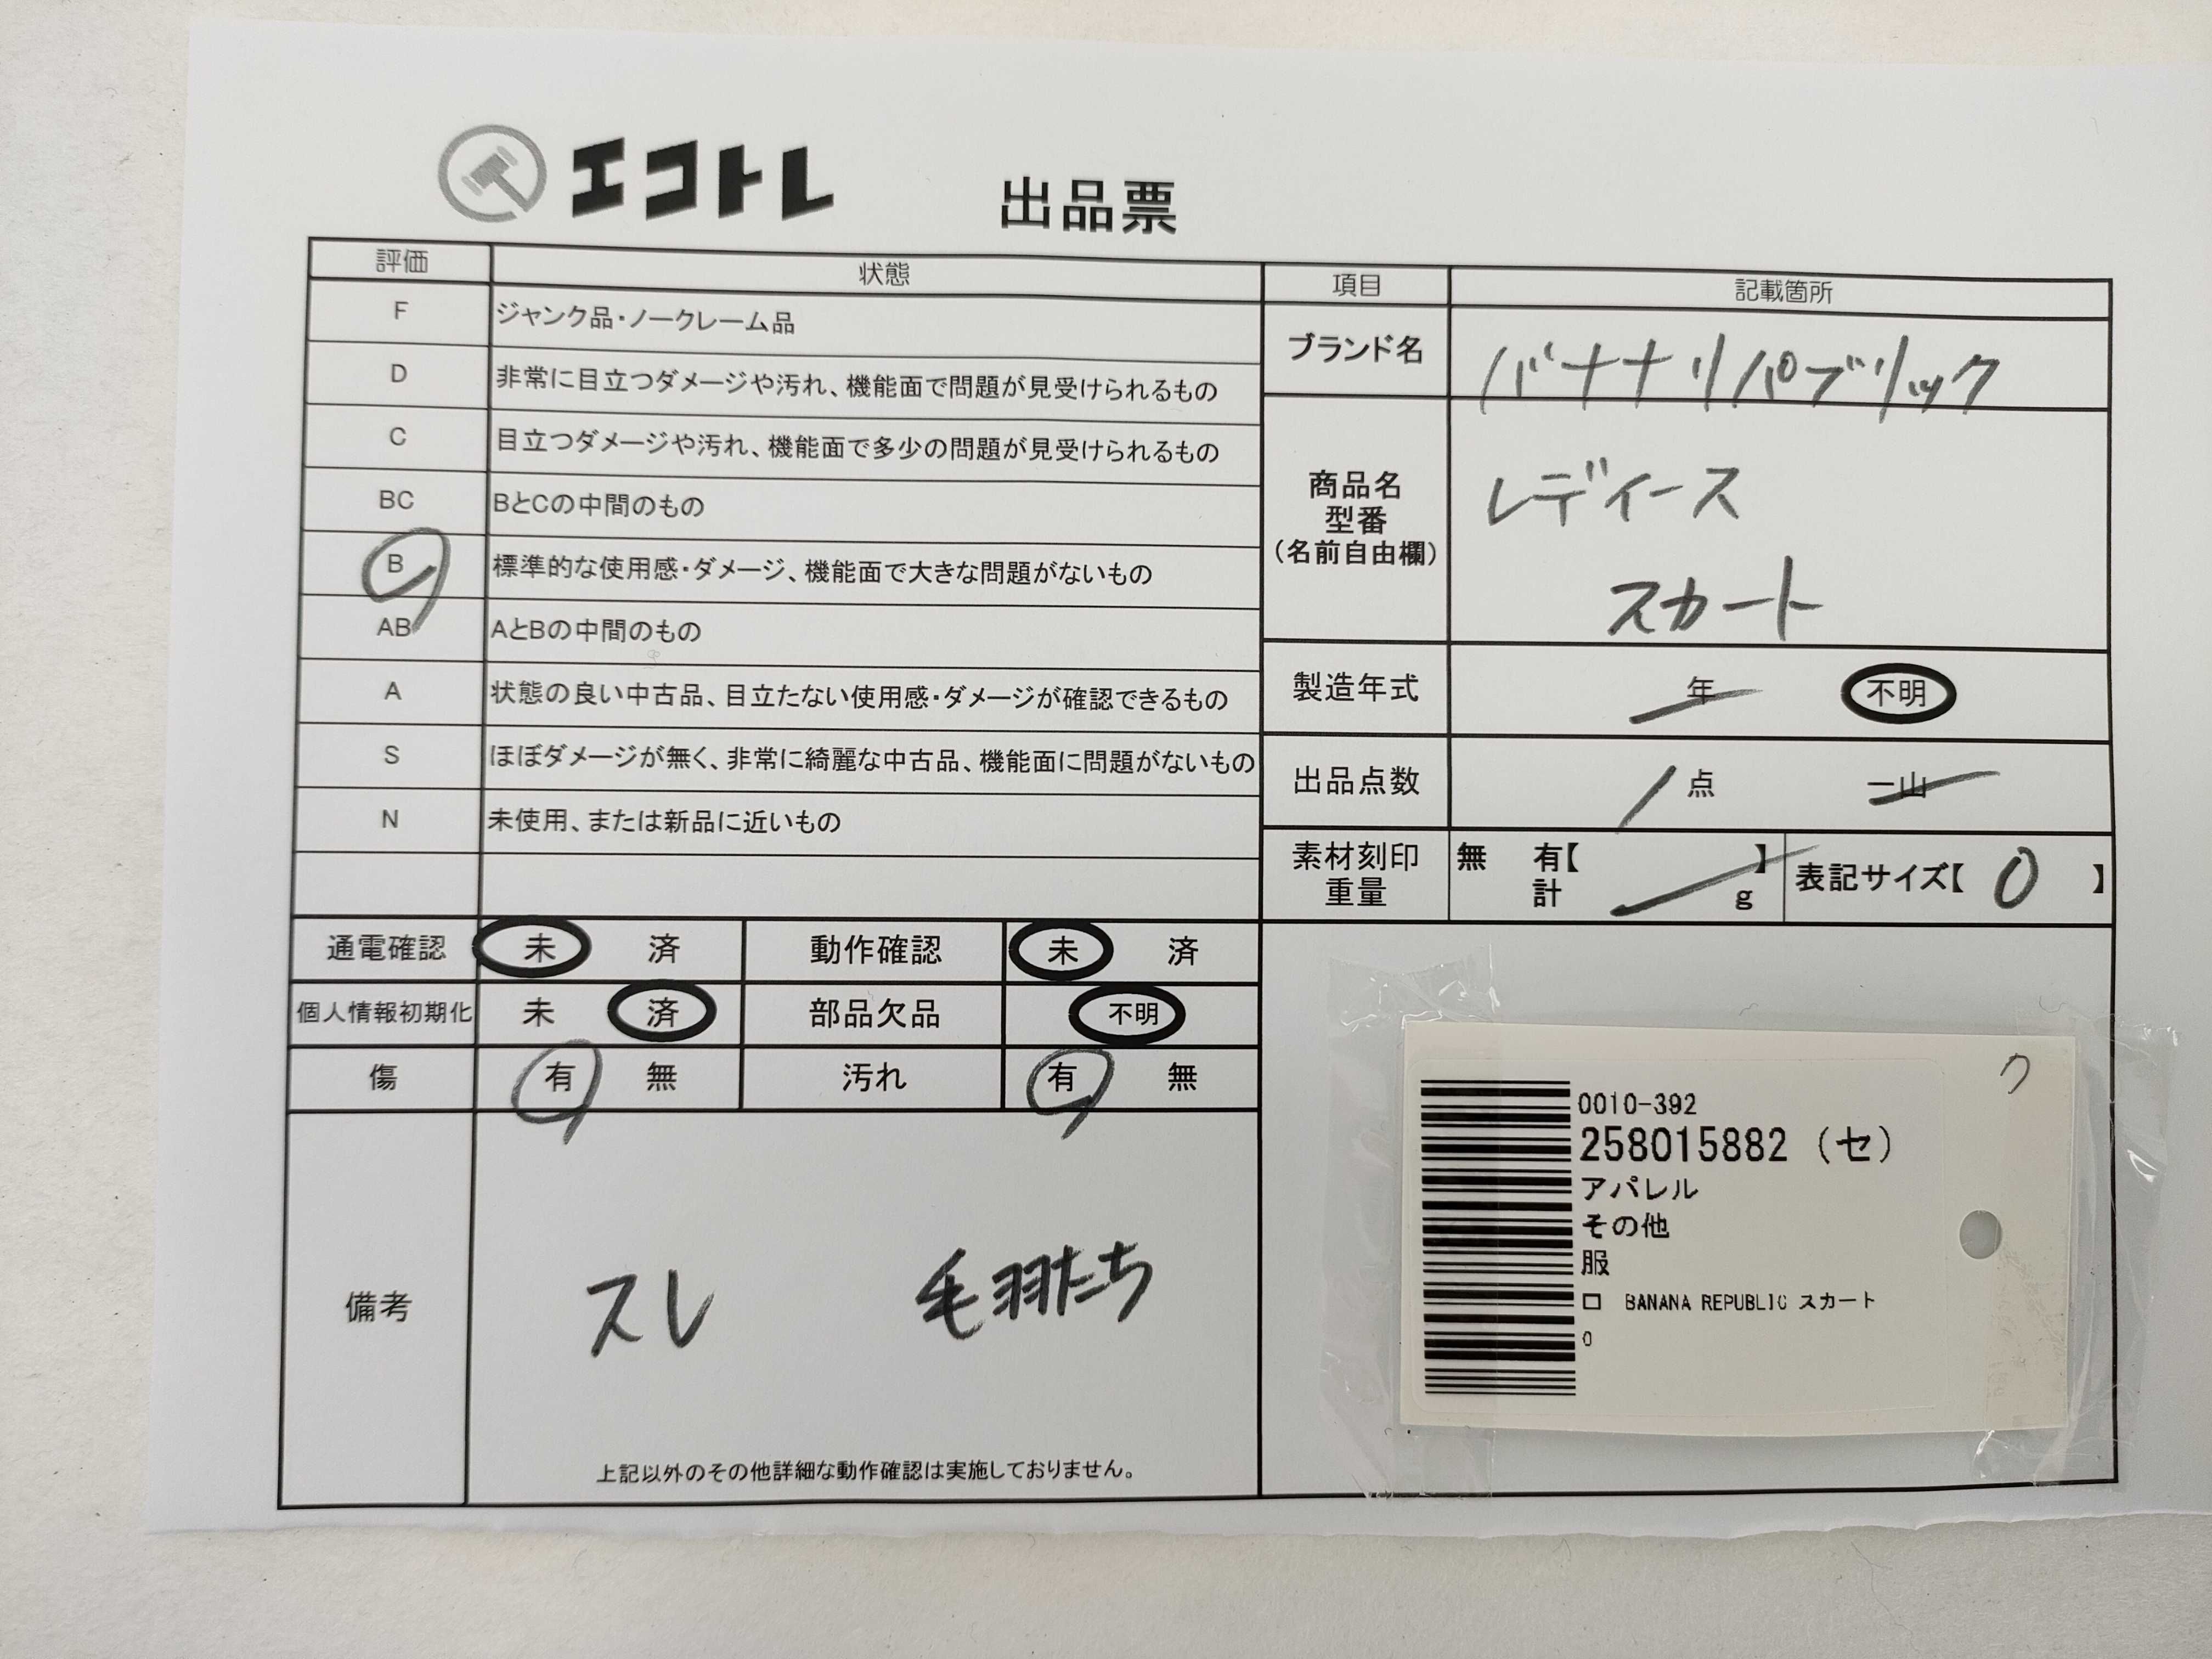 エコトレ
出品票
評価 状態
F ジャンク品・ノークレーム品
D 非常に目立つダメージや汚れ、機能面で問題が見受けられるもの
C 目立つダメージや汚れ、機能面で多少の問題が見受けられるもの
BC BとCの中間のもの
B 標準的な使用感・ダメージ、機能面で大きな問題がないもの
AB AとBの中間のもの
A 状態の良い中古品、目立たない使用感・ダメージが確認できるもの
S ほぼダメージが無く、非常に綺麗な中古品、機能面に問題がないもの
N 未使用、または新品に近いもの
項目 記載箇所
ブランド名 バナナリパブリック
商品名
型番
(名前自由欄)
レディース
スカート
製造年式 年 不明
出品点数 1点 一山
素材刻印
重量
無 有【 】
計 g
表記サイズ【 0 】
通電確認 未 済 動作確認 未 済
個人情報初期化 未 済 部品欠品 不明
傷 有 無 汚れ 有 無
備考
スレ 毛羽たち
上記以外のその他詳細な動作確認は実施しておりません。
ク
0010-392
258015882 (セ)
アパレル
その他
服
ロ BANANA REPUBLIC スカート
0